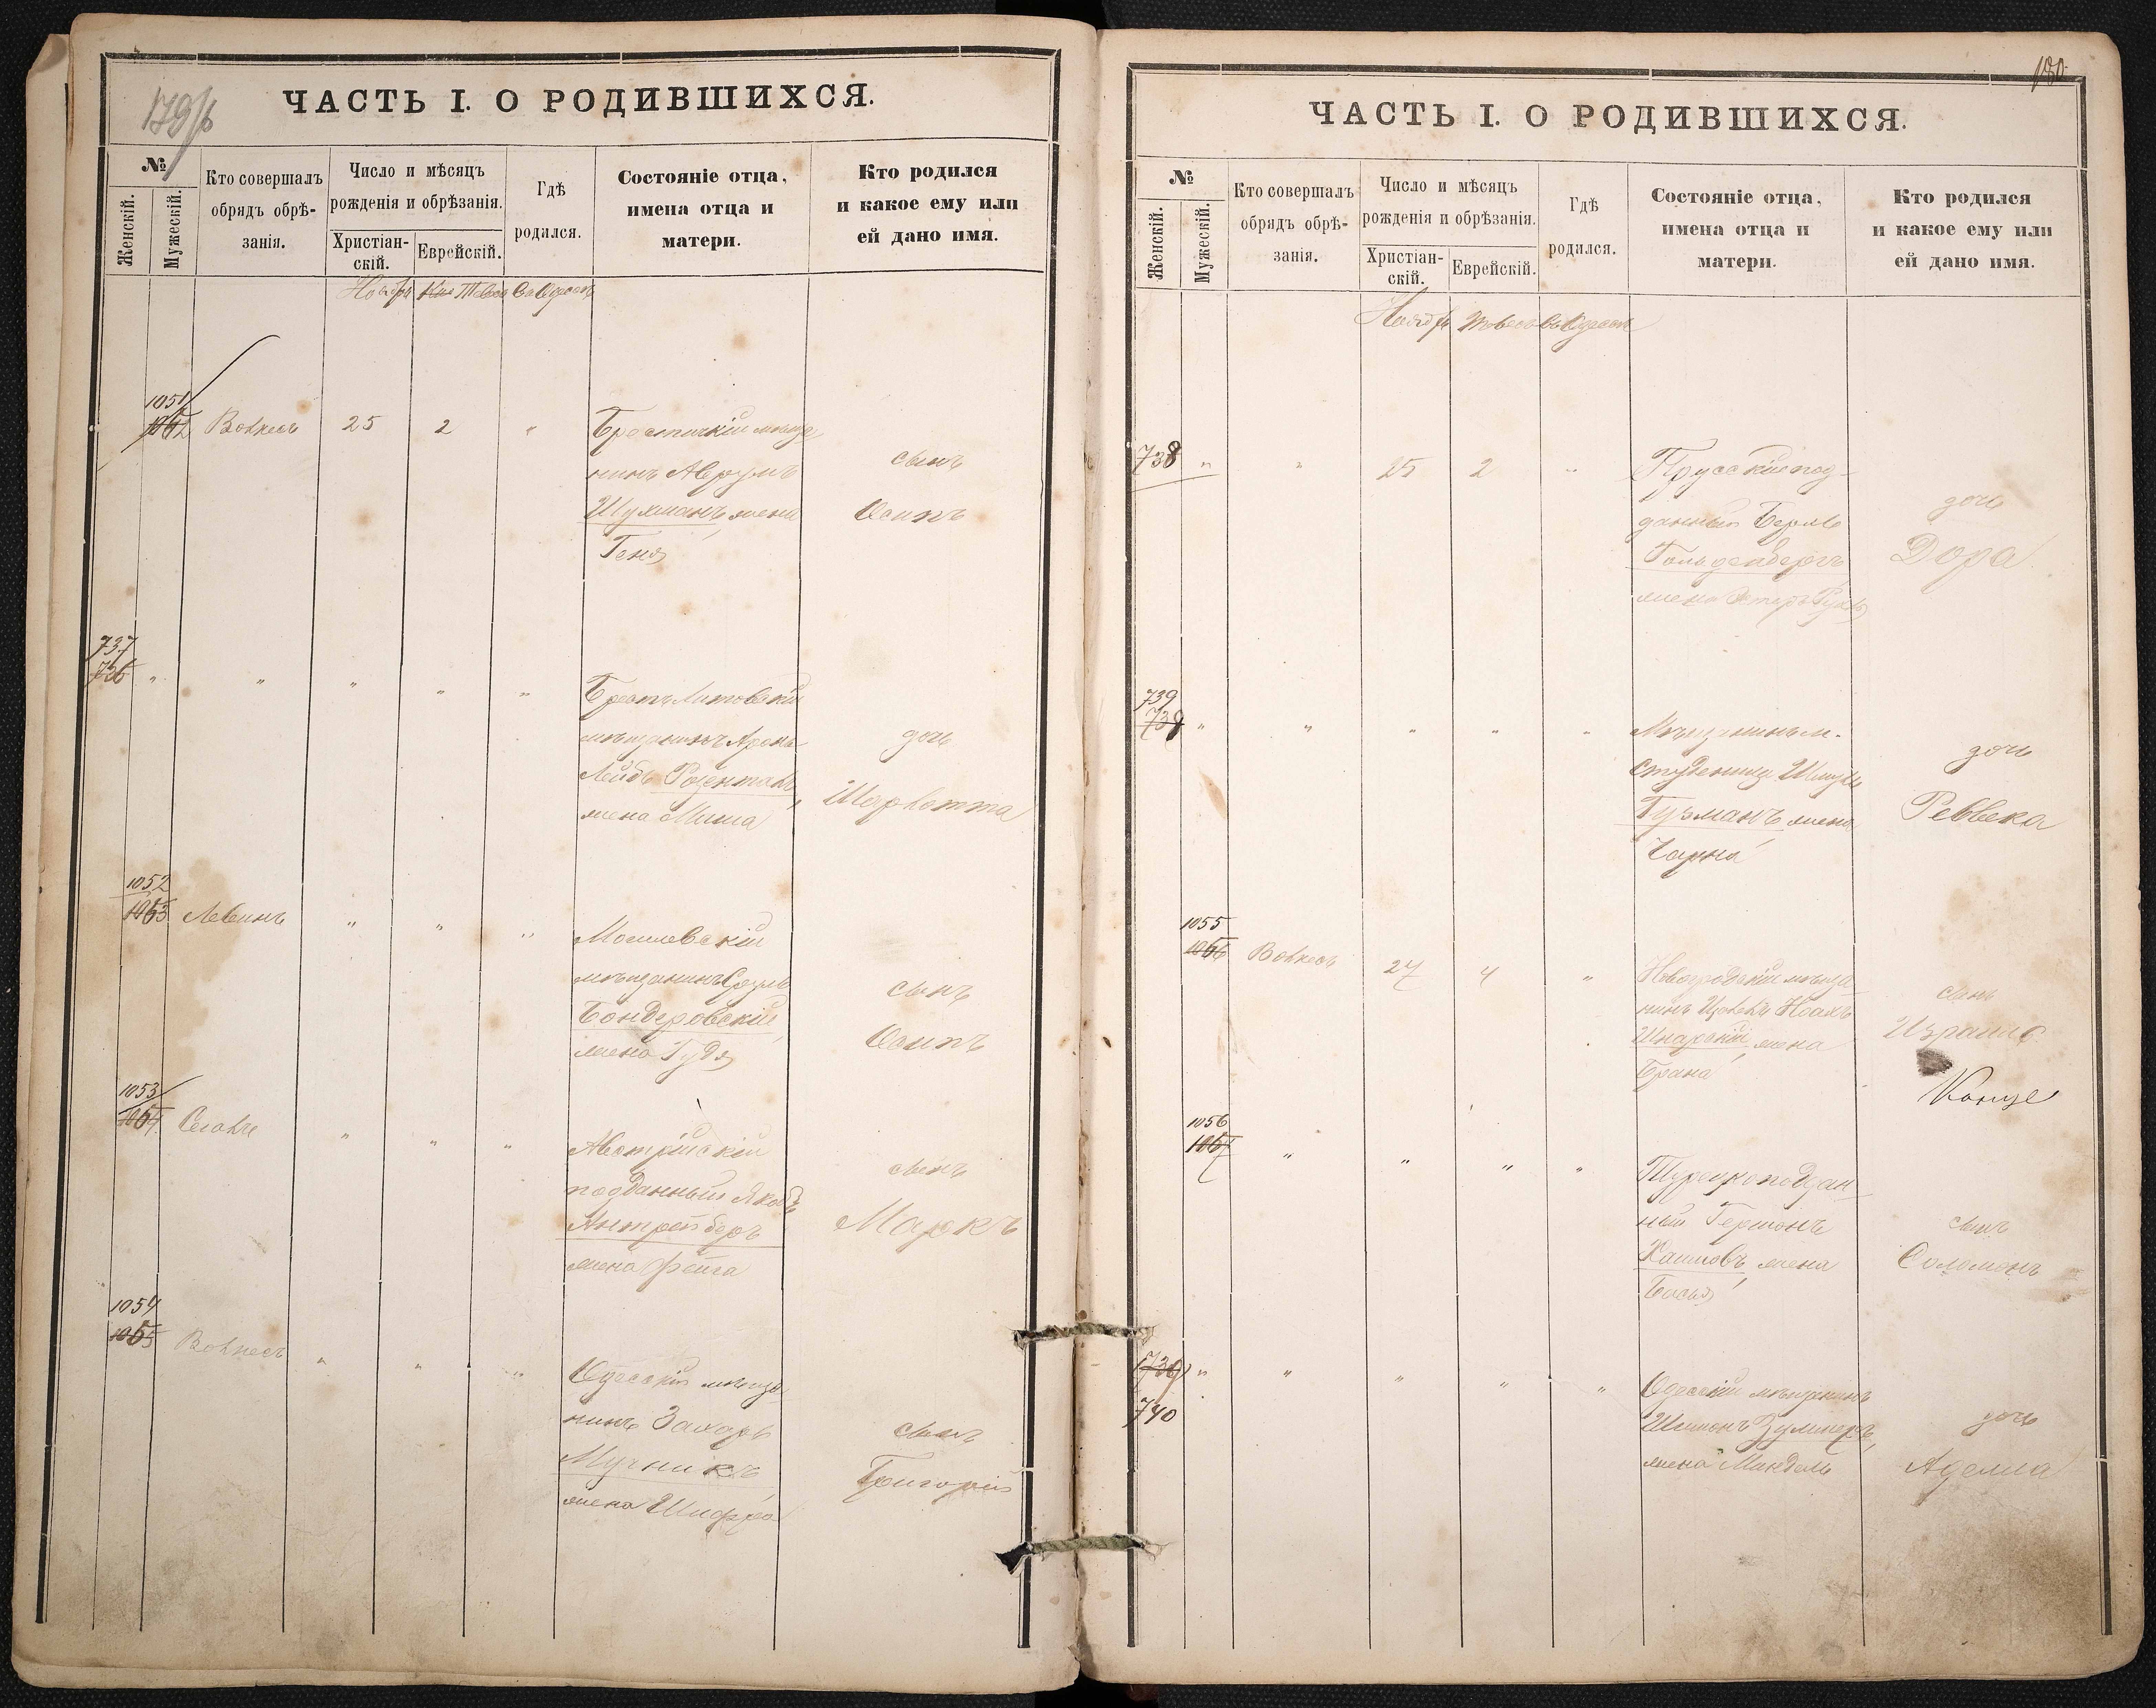 179/б
ЧАСТЬ I. О РОДИВШИХСЯ.
№
Женскій.
Мужескій.
Кто совершалъ
обрядъ обрѣ-
занія.
Число и мѣсяцъ
рожденія и обрѣзанія.
Христіан-
скій.
Еврейскій.
Гдѣ
родился.
Состояніе отца,
имена отца и
матери.
Кто родился
и какое ему или
ей дано имя.
Ноябрь Тевесъ Въ Одессѣ
1051
1062 Волкесъ 25 2 "
нинъ Аврумъ
Шулманъ, жена
Геня
сынъ
Осипъ
737
736 " " " " "
Брестъ Литовскій
мѣщанинъ Аронъ
Лейбъ Розенталь,
жена Миша
дочь
Шарлотта
1052
1063 Левинъ " " "
Могилевскій
мѣщанинъ Сруль
Бондеровскій,
жена Гудя
сынъ
Осипъ
1053
1064 " " "
Австрійскій
подданный Якобъ
жена Фейга
сынъ
Маркъ
1054
1065 Волкесъ " " "
Одесскій мѣща-
нинъ Захаръ
Мучникъ
жена Шифра
сынъ
Григорій
180
ЧАСТЬ I. О РОДИВШИХСЯ.
№
Женскій.
Мужескій.
Кто совершалъ
обрядъ обрѣ-
занія.
Число и мѣсяцъ
рожденія и обрѣзанія.
Христіан-
скій.
Еврейскій.
Гдѣ
родился.
Состояніе отца,
имена отца и
матери.
Кто родился
и какое ему или
ей дано имя.
Ноябрь Тевесъ Въ Одессѣ
738 " " 25 2 "
Прусскій под-
данный Берль
Гольденбергъ
жена Эстеръ
дочь
Дора
739
739 " " " " "
Мѣщанинъ м.
Гузманъ жена
Чарна
дочь
Реввека
1055
1066 Волкесъ 27 4 "
нинъ Ноахъ
жена
Брана
сынъ
Израиль
1056
1067 " " " "
Турецкоподдан-
ный Гершонъ
Хаимовъ, жена
Бася
сынъ
Соломонъ
(739) " " " " "
740
Одесскій мѣщанинъ
Шимонъ
жена Миндель
дочь
Аделла